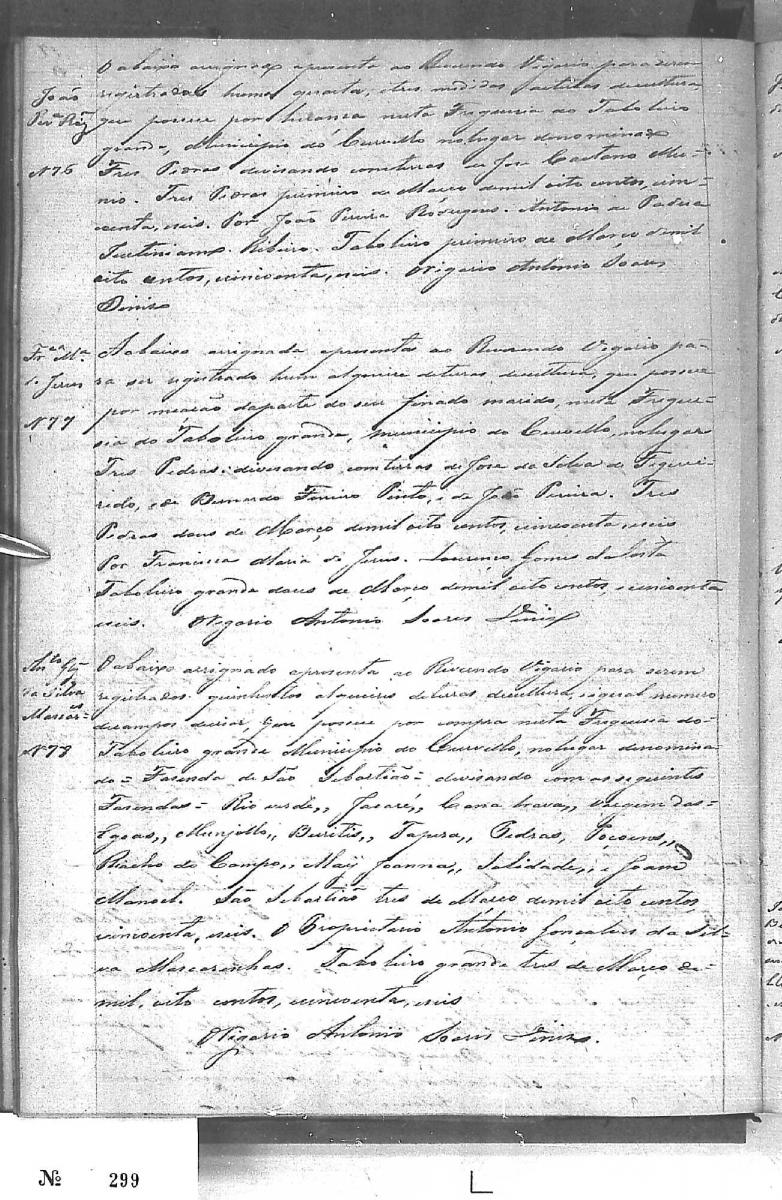 O abaixo assignado apresenta ao Reverendo Vigario para serem
João
Per.ª Roiz
registradas huma quarta, e tres medidas de cultura
que possue por herança nesta Freguesia do Taboleiro
grande, Municipio do Curvello no lugar denominado
N 76
Tres Pedras divisando com terras de Jose Caetano Mu-
nis. Tres Pedras primeiro de Março de mil oito centos, cin-
coenta, e seis. Por João Pereira Rodrigues. Antonio de Padua
Ribeiro. Taboleiro primeiro de Março de mil
oito centos, cincoenta, e seis. Vigario Antonio Soares
Diniz
Fr.ca M.ª
de Jesus
A abaixo assignada apresenta ao Reverendo Vigario pa-
ra ser registrado hum alqueire de terras de cultura, que possue
N 77
por meação da parte do seu finado marido, nesta Fregue-
sia do Taboleiro grande, Municipio do Curvello, no lugar
Tres Pedras: divisando com terras de Jose da Silva de Figuei-
redo, e de Bernardo Pinto, e de João Pereira. Tres
Pedras dous de Março de mil oito centos, cincoenta, e seis
Por Francisca Maria de Jesus. Lourenço Gomes da Costa
Taboleiro grande dous de Março de mil oito centos, e cincoenta
e seis. Vigario Antonio Soares Diniz
Ant.o Glz
da Silva
Mascar.as
O abaixo assignado apresenta ao Reverendo Vigario para serem
registrados quinhentos alqueires de terras de cultura, e igual numero
de campos de criar, que possue por compra nesta Freguesia do
N 78
Taboleiro grande Municipio do Curvello, no lugar denomina
do = Fasenda de São Sebastião = divisando com as seguintes
Fasendas = Rio verde,, Jacaré,, Canna brava,, Vargem das
Egoas,, Munjollo,, Buritis,, Tapera,, Pedras, Poçoens,,
Riacho do Campo,, Maÿ Joanna,, Solidade,, e Joam
Manoel. São Sebastião tres de Março de mil oito centos,
cincoenta, e seis. O Proprietario Antonio Gonçalves da Sil-
va Mascarenhas. Taboleiro grande tres de Março de
mil, oito centos, cincoenta, e seis
Vigario Antonio Soares Diniz.
Nº 299